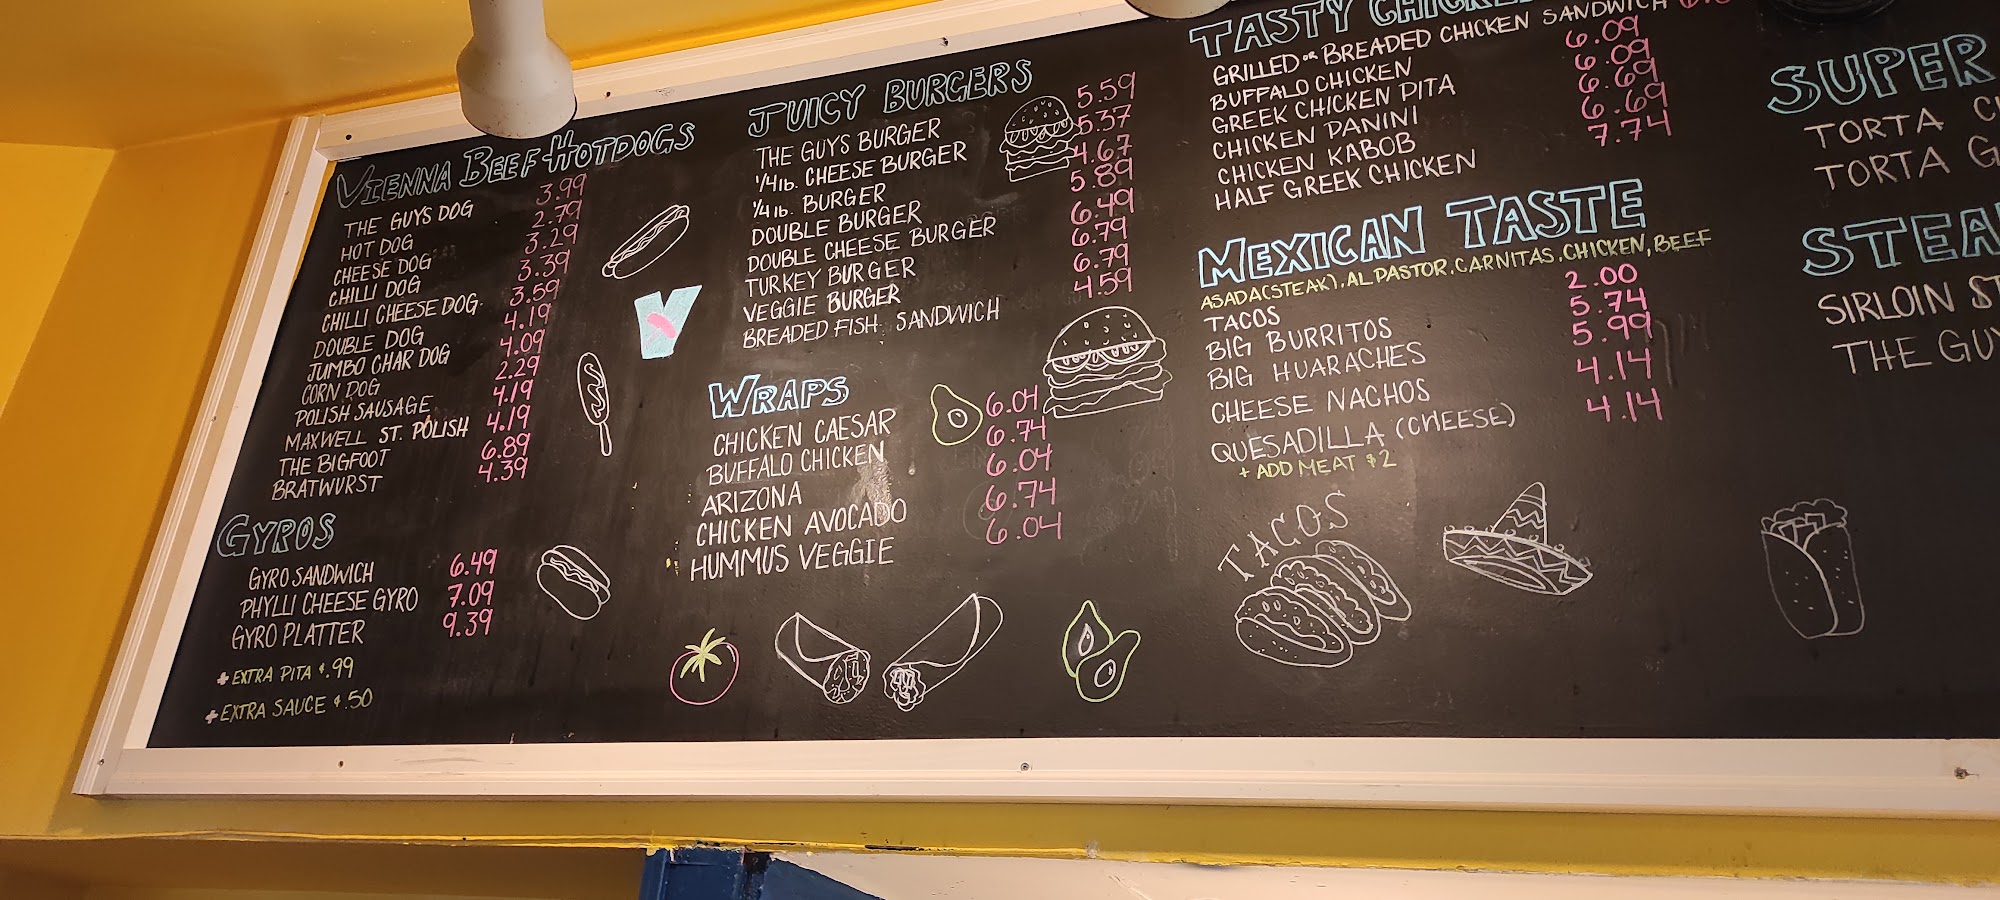 VIENNA BEEF HOTDOGS
THE GUYS DOG 3.99
HOT DOG 2.79
CHEESE DOG 3.29
CHILLI DOG 3.39
CHILLI CHEESE DOG 3.59
DOUBLE DOG 4.19
JUMBO CHAR DOG 4.09
CORN DOG 2.29
POLISH SAUSAGE 4.19
MAXWELL ST. POLISH 4.19
THE BIGFOOT 6.89
BRATWURST 4.39
GYROS
GYRO SANDWICH 6.49
PHYLLI CHEESE GYRO 7.09
GYRO PLATTER 9.39
+ EXTRA PITA $.99
+ EXTRA SAUCE $.50
JUICY BURGERS
THE GUYS BURGER 5.59
1/4 lb. CHEESE BURGER 5.37
1/4 lb. BURGER 4.67
DOUBLE BURGER 5.89
DOUBLE CHEESE BURGER 6.49
TURKEY BURGER 6.79
VEGGIE BURGER 6.79
BREADED FISH SANDWICH 4.59
WRAPS
CHICKEN CAESAR 6.04
BUFFALO CHICKEN 6.74
ARIZONA 6.04
CHICKEN AVOCADO 6.74
HUMMUS VEGGIE 6.04
TASTY CHICKEN
GRILLED OR BREADED CHICKEN SANDWICH
BUFFALO CHICKEN 6.09
GREEK CHICKEN PITA 6.09
CHICKEN PANINI 6.69
CHICKEN KABOB 6.69
HALF GREEK CHICKEN 7.74
MEXICAN TASTE
ASADA(STEAK), AL PASTOR, CARNITAS, CHICKEN, BEEF
TACOS 2.00
BIG BURRITOS 5.74
BIG HUARACHES 5.99
CHEESE NACHOS 4.14
QUESADILLA (CHEESE) 4.14
+ ADD MEAT $2
TACOS
SUPER
TORTA
TORTA
STEA
SIRLOIN
THE GUY